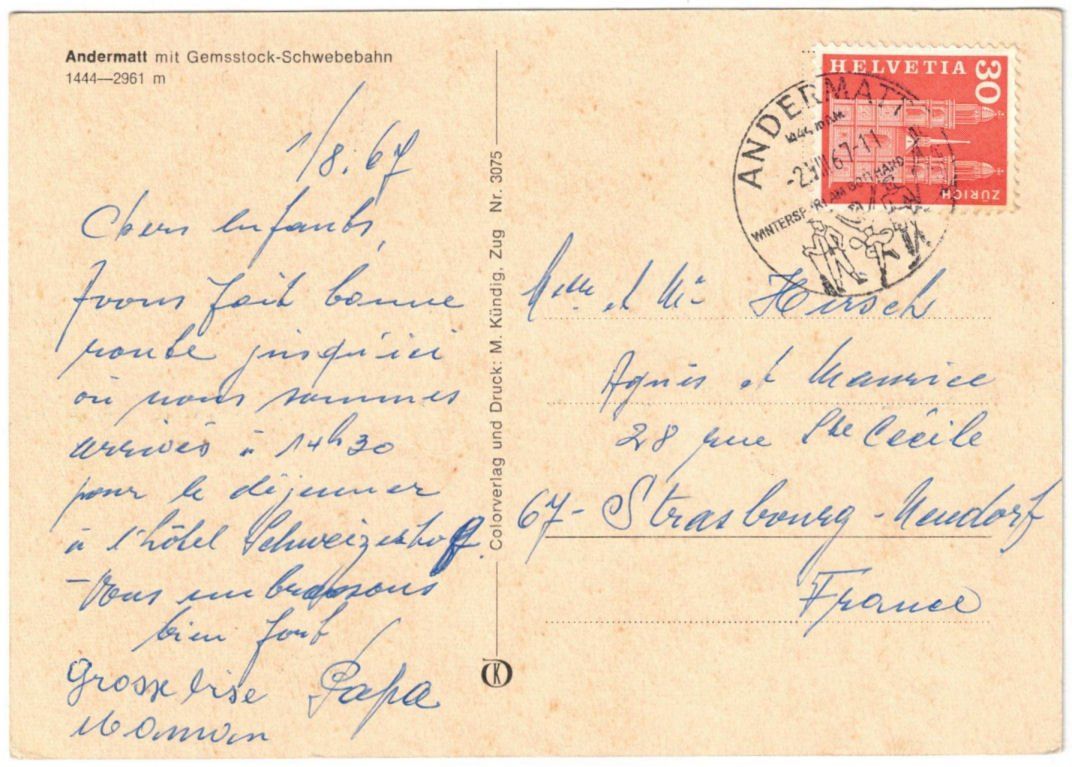 Andermatt mit Gemsstock-Schwebebahn
1444—2961 m
1/8.67
Chers enfants,
Avons fait bonne
route jusqu'ici
où nous sommes
arrivés à 14h30
pour le déjeuner
à l'hôtel Schweizerhof.
Vous embrassons
bien fort
Grosse bise Papa
Maman
Colorverlag und Druck: M. Kündig, Zug Nr. 3075
HELVETIA 30
ZÜRICH
ANDERMATT
-2.VIII.67-11
WINTERSPORT AM GOTTHARD
Mme et Mr Hirsch
Agnès et Maurice
28 rue Ste Cécile
67- Strasbourg-Neudorf
France